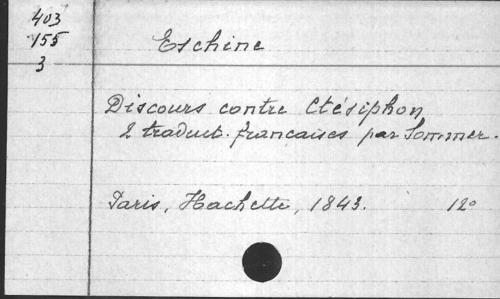 403
155
3
Eschine
Discours contre Ctésiphon
2 traduct. francaises par Sommer.
Paris, Hachette, 1843. 12°